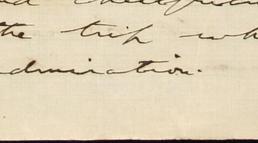 the trip wh
dmiration.